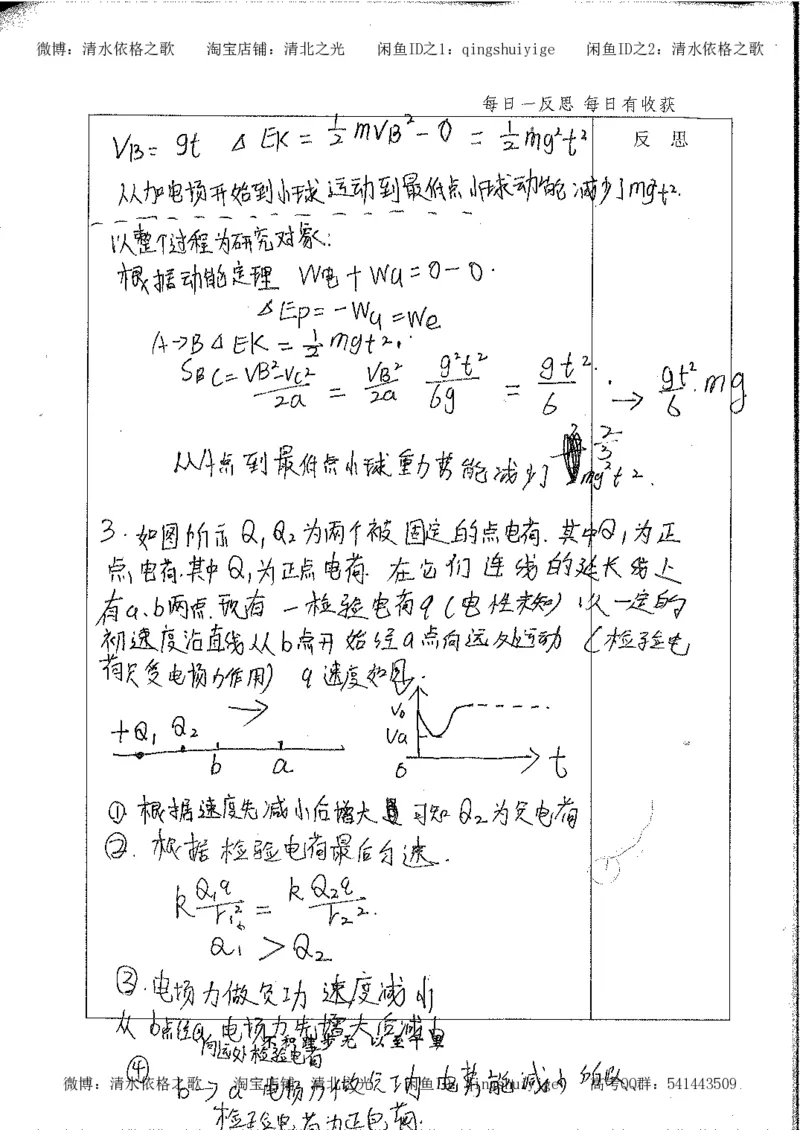 微博：清水依格之歌 淘宝店铺：清北之光 闲鱼ID之1：qingshuiyige 闲鱼ID之2：清水依格之歌
每日一反思 每日有收获
反 思
VB = gt ΔEK = 1/2 mVB² - 0 = 1/2 mg²t²
从加电场开始到小球运动到最低点小球动能减少了mg²t².
以整个过程为研究对象:
根据动能定理 W电 + WG = 0 - 0.
ΔEp = -WG = We
A→B ΔEK = 1/2 mg²t².
SBC = VB²-VC²/2a = VB²/2a g²t²/6g = gt²/6. → gt²/6 . mg
从A点到最低点小球重力势能减少了 2/3 mg²t².
3. 如图所示 Q₁ Q₂为两个被固定的点电荷. 其中Q₁为正
点电荷.其中Q₁为正点电荷. 在它们连线的延长线上
有a、b两点.现有一检验电荷q (电性未知) 以一定的
初速度沿直线从b点开始经a点向远处运动 (检验电
荷只受电场力作用) q速度如图.
+Q₁ Q₂ →
b a
V₀
Va
0 t
① 根据速度先减小后增大 可知Q₂为负电荷
②. 根据检验电荷最后匀速.
k Q₁q/r₁² = k Q₂q/r₂².
Q₁ > Q₂
③. 电场力做负功 速度减小
从b点经a 电场力先增大后减小
向远处检验电荷
④ b→a 电场力做负功 电势能减小
检验电荷为正电荷.
微博：清水依格之歌 淘宝店铺：清北之光 闲鱼ID：qingshuiyige 高考QQ群：541443509